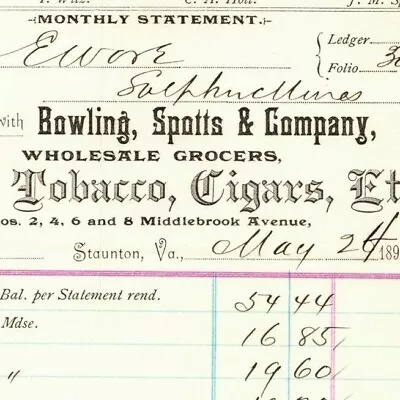 MONTHLY STATEMENT.
Ledger
Folio
Sulphur Mines
with Bowling, Spotts & Company,
WHOLESALE GROCERS,
Tobacco, Cigars, Et
os. 2, 4, 6 and 8 Middlebrook Avenue,
Staunton, Va., May 24 189
Bal. per Statement rend. 54 44
Mdse. 16 85
" 19 60